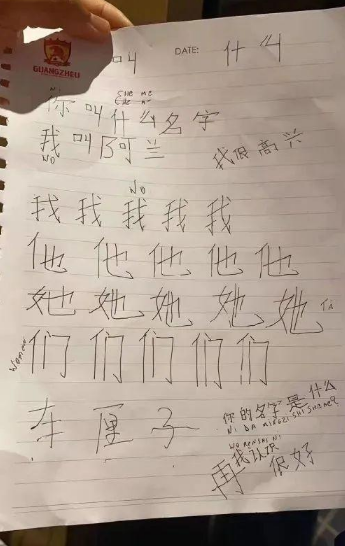 GUANGZHOU
叫 DATE: 什 么
SHE ME
你 叫 什 么 名 字
我 叫 阿 兰 我 很 高 兴
WO
WO
我 我 我 我 我
他 他 他 他 他
她 她 她 她 她 TA
women 们 们 们 们 们
车 厘 子
你 的 名 字 是 什 么
NI DA MINGZI SHI SHENME
WO RENSHI NI
我 认识
再 很 好